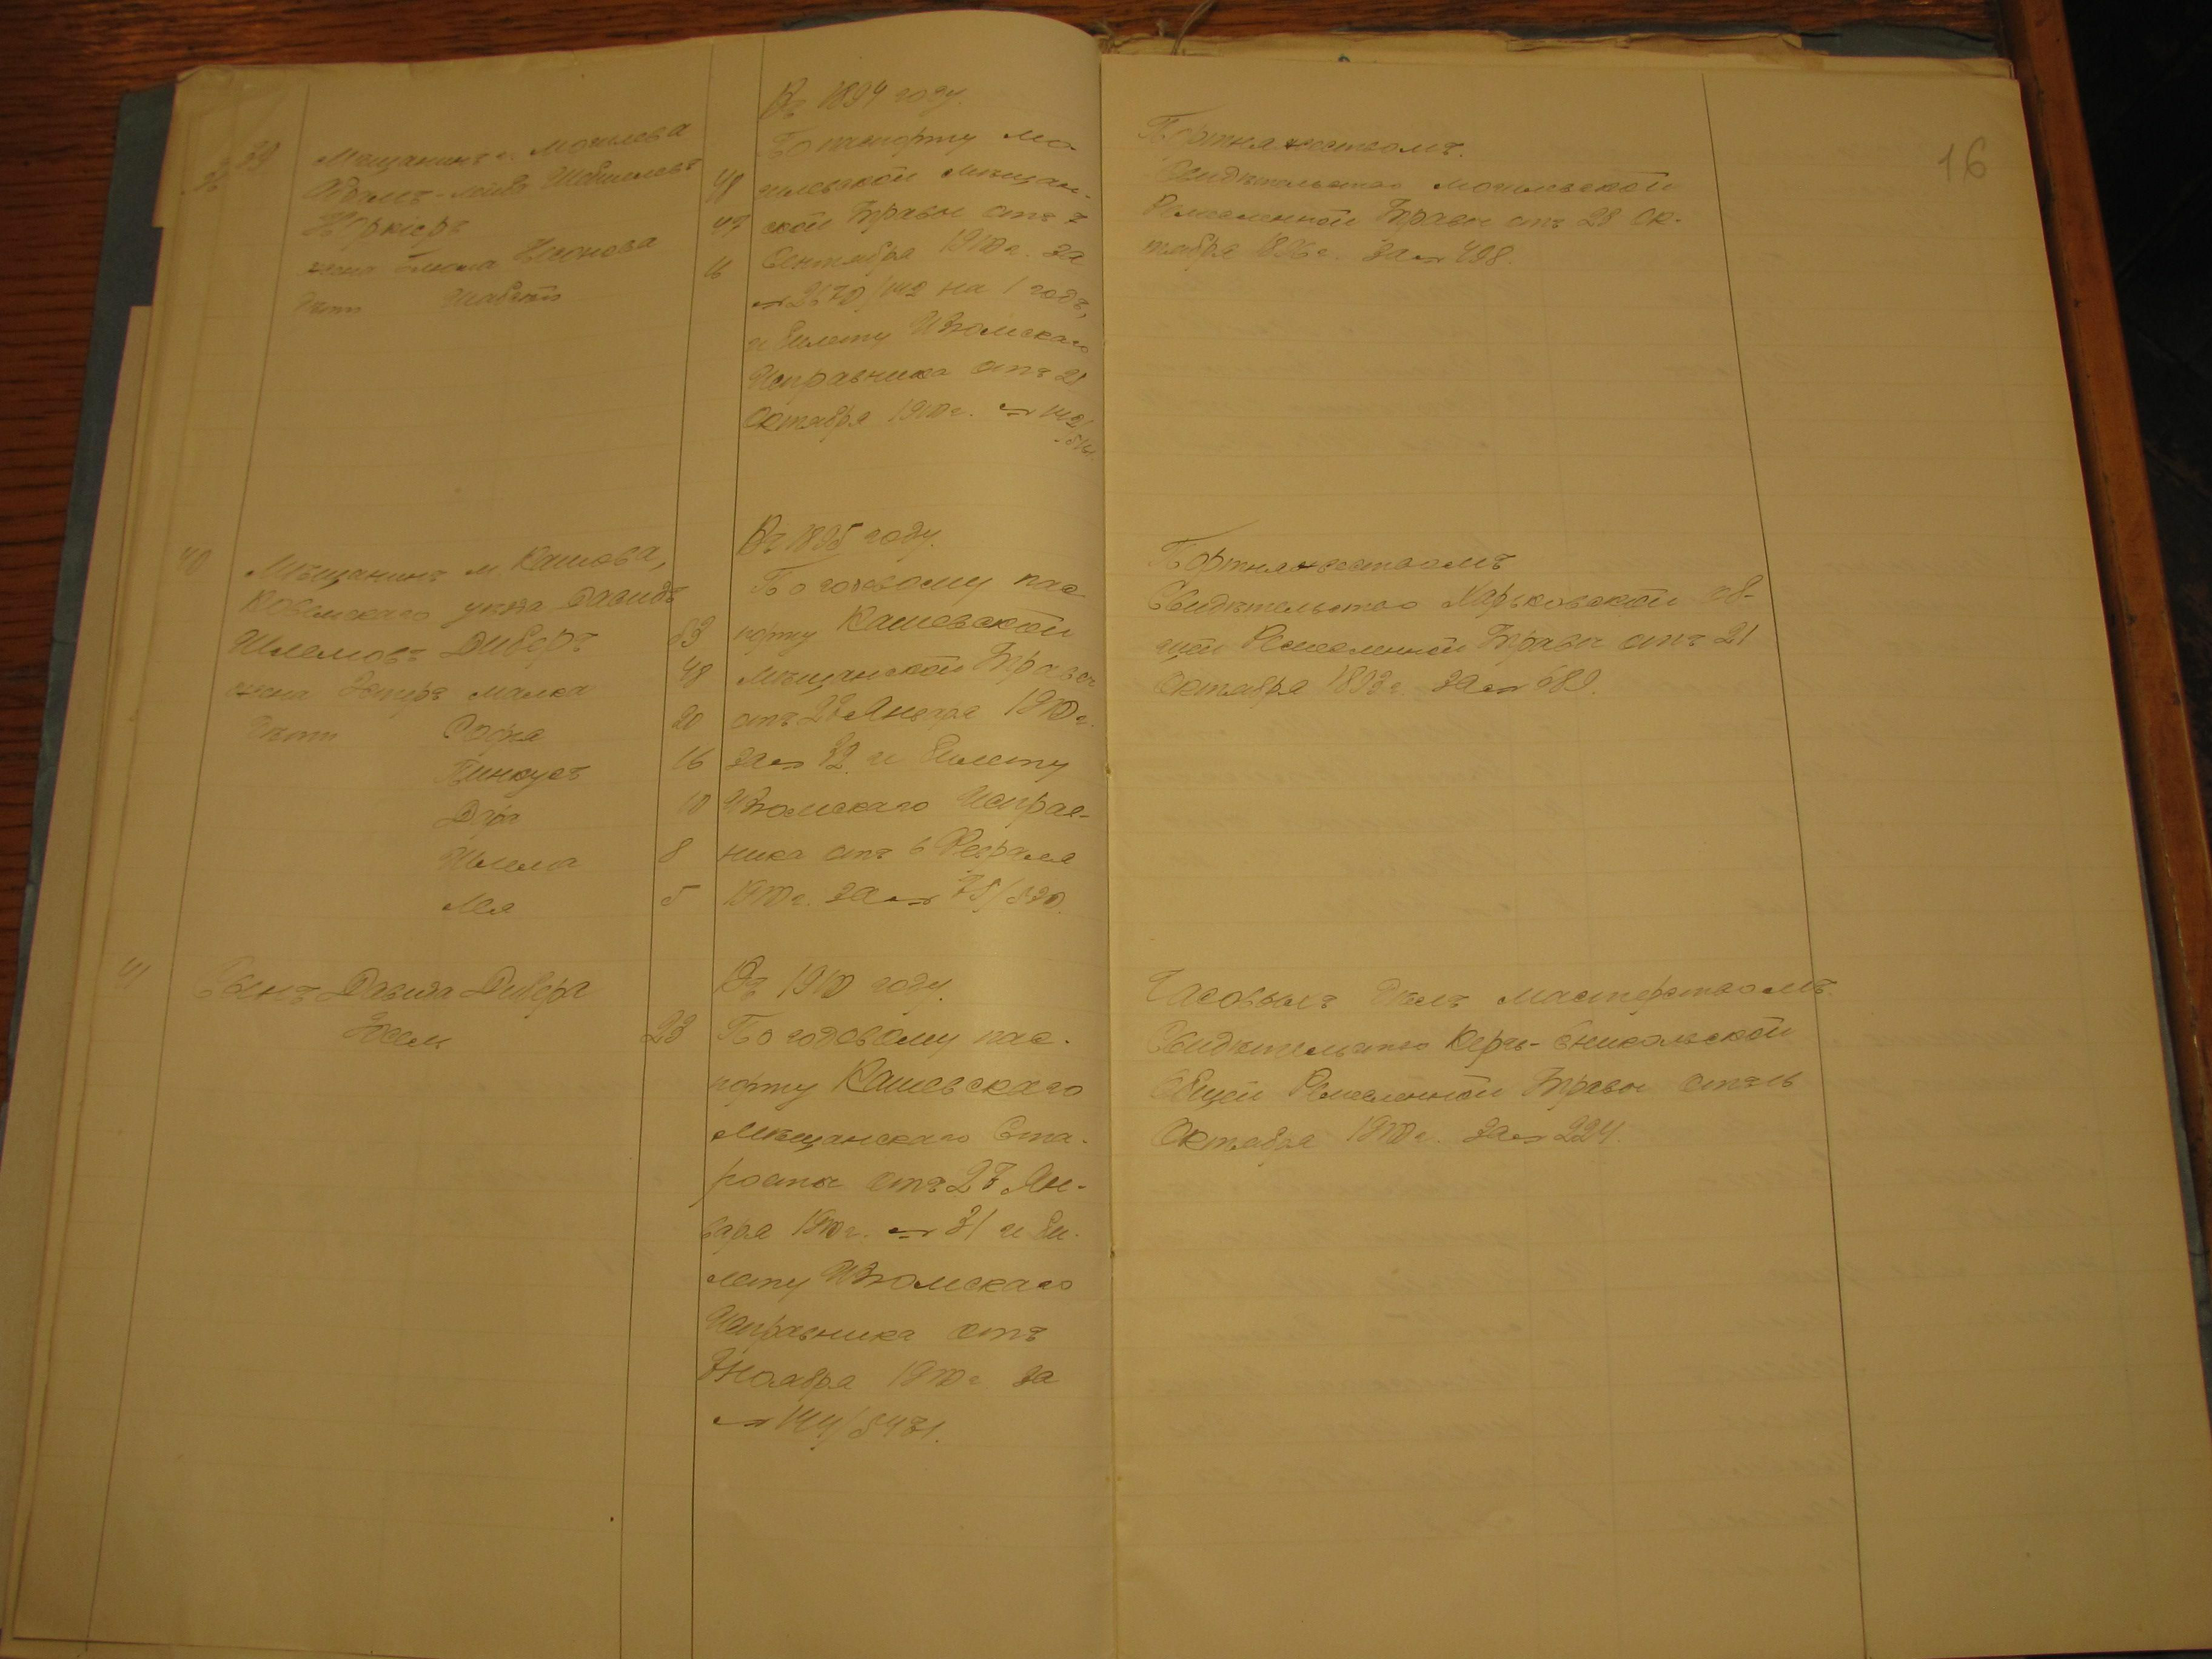 16
39
Мещанинъ г. Могилева
жена Нсонова
дѣти
48
49
16
Въ 1894 году.
По паспорту Мо-
гилевской Мѣщан-
ской Управы отъ 7
Сентября 1910 г. за
№ 2670/142 на 1 годъ,
и билету Изюмскаго
Исправника отъ 21
Октября 1910 г. № 142/
Портняжествомъ.
Свидѣтельство Могилевской
Ремесленной Управы отъ 28 Ок-
тября 1896 г. за № 498.
40
Мѣщанинъ м. Кашова,
Ковельскаго уѣзда Давидъ
Шлемовъ Диберъ
жена Эстеръ Малка
дѣти
Пинкусъ
Шлема
Лея
53
48
20
16
10
8
5
Въ 1895 году.
По годовому пас
порту Кашовской
Мѣщанской Управы
отъ 27 Января 1910 г.
за № 32 и билету
Изюмскаго Исправ-
ника отъ 6 Февраля
1910 г. за № 75/520.
Портняжествомъ
Свидѣтельство Харьковской об-
щей Ремесленной Управы отъ 21
Октября 1893 г. за № 689.
41
Сынъ Давида Дибера
23
Въ 1910 году.
По годовому пас-
порту Кашовскаго
Мѣщанскаго Ста-
росты отъ 27 Ян-
варя 1910 г. № 31 и би-
лету Изюмскаго
Исправника отъ
Ноября 1910 г. за
№ 144/5471.
Часовыхъ дѣлъ мастерствомъ.
Свидѣтельство Керчь-Еникольской
Общей Ремесленной Управы отъ
Октября 1910 г. за № 224.